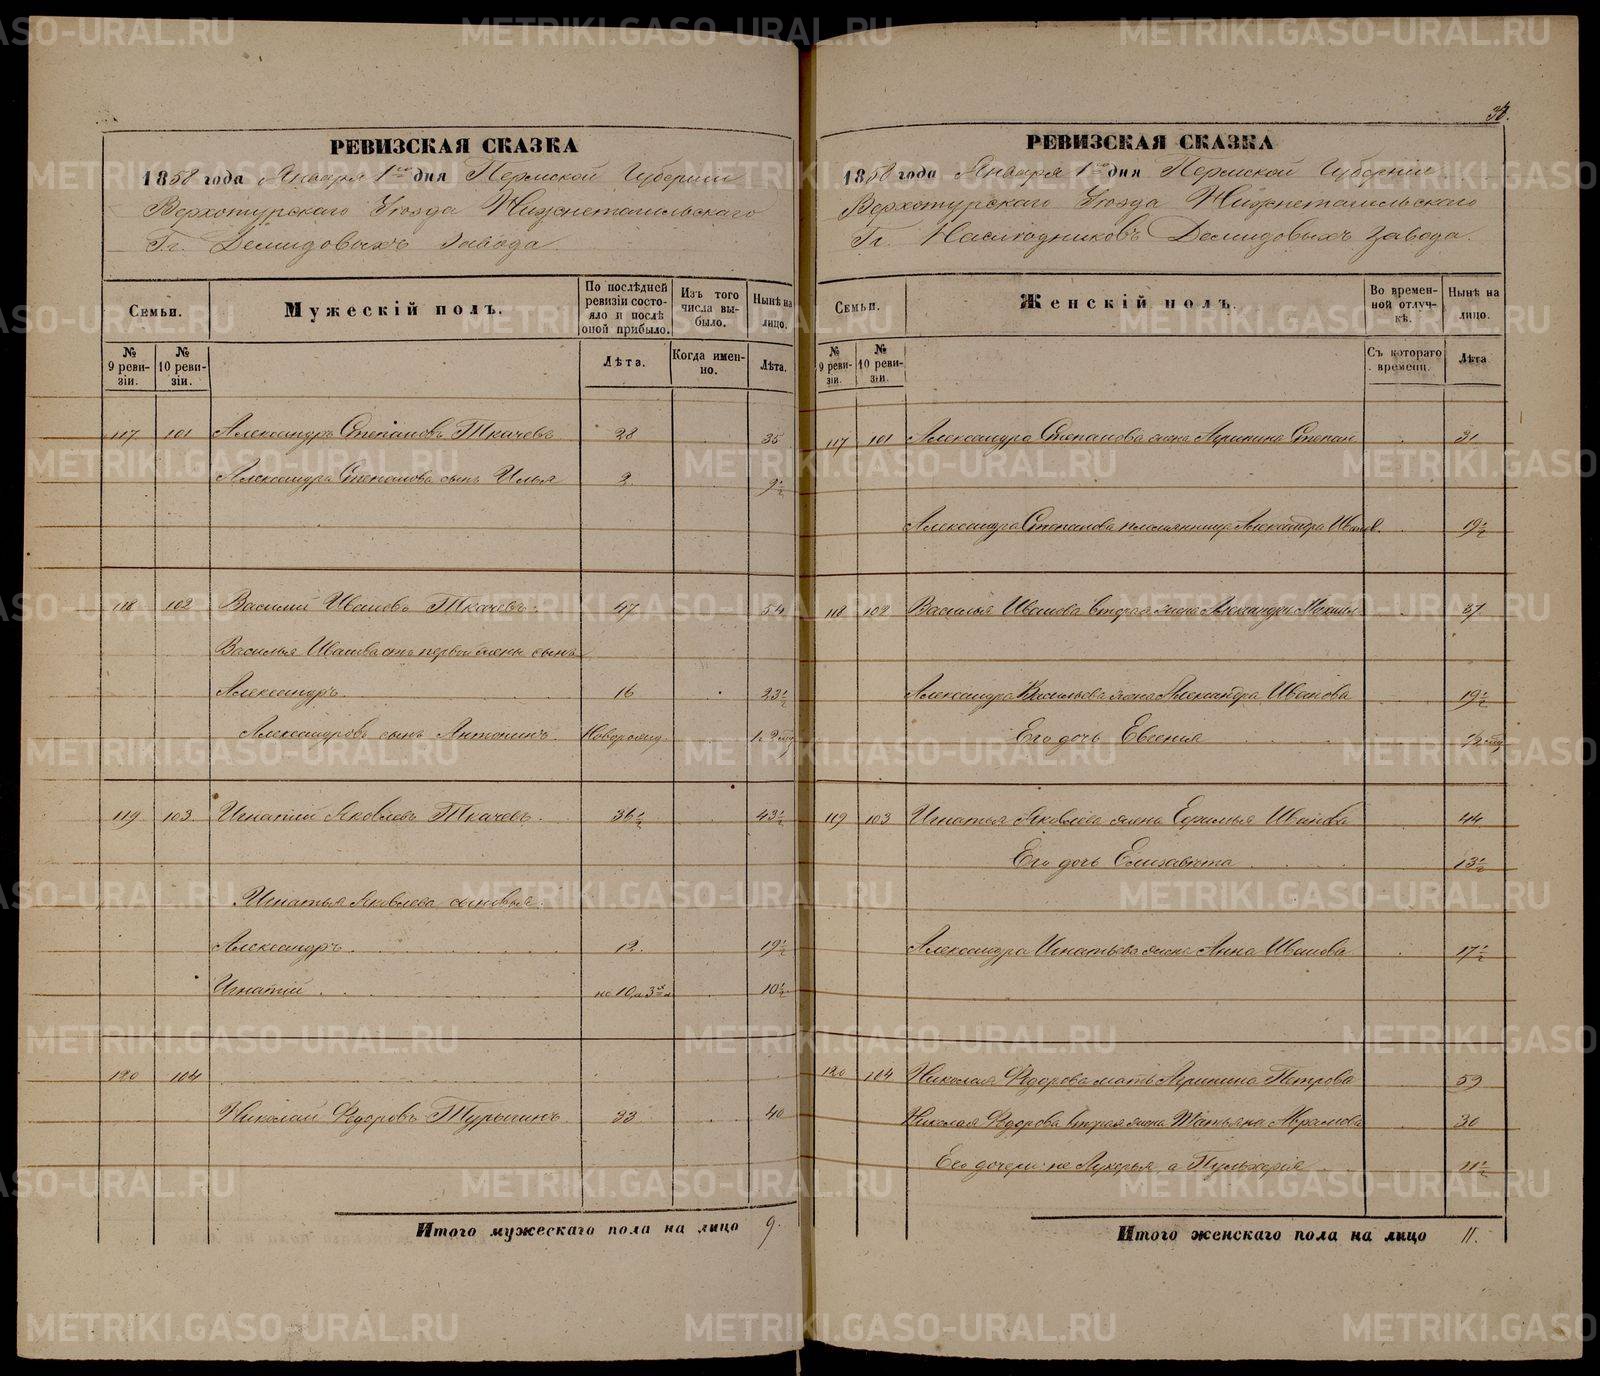 РЕВИЗСКАЯ СКАЗКА
1858 года Января 1го дня Пермской Губернии
Верхотурскаго Уѣзда Нижнетагильскаго
Гг. Демидовыхъ завода
Семьи.
Мужескій полъ.
По послѣдней ревизіи состояло и послѣ оной прибыло.
Изъ того числа выбыло.
Нынѣ на лицо.
№ 9 ревизіи.
№ 10 ревизіи.
Лѣта.
Когда именно.
Лѣта.
117 101 Александръ Степановъ Ткачевъ 28 35
Александра Степанова сынъ Илья 2 9½
118 102 Василий Ивановъ Ткачевъ 47 54
Василья Иванова отъ первой жены сынъ
Александръ 16 23½
Александровъ сынъ Антонинъ Новорожд.
119 103 Игнатій Яковлевъ Ткачевъ 36½ 43½
Игнатья Яковлева сыновья
Александръ 12 19½
Игнатій 10½
120 104
Николай Федоровъ Турыгинъ 33 40
Итого мужескаго пола на лицо 9.
РЕВИЗСКАЯ СКАЗКА
1858 года Января 1го дня Пермской Губерніи
Верхотурскаго Уѣзда Нижнетагильскаго
Гг. Наслѣдниковъ Демидовыхъ завода.
Семьи.
Женскій полъ.
Во временной отлучкѣ.
Нынѣ на лицо.
№ 9 ревизіи.
№ 10 ревизіи.
Съ котораго времени.
Лѣта
117 101 Александра Степанова жена Агрипина Степан 31
Александра Степанова племянница Александра Иванов. 19½
118 102 Василья Иванова вторая жена Александра Максим. 37
Александра Васильева жена Александра Иванова 19½
Его дочь Евгенія
119 103 Игнатья Яковлева жена Ефимья Иванова 44
Его дочь Елизавѣта 13½
Александра Игнатьева жена Анна Иванова 17½
120 104 Николая Федорова мать Агрипина Петрова 59
Николая Федорова вторая жена Татьяна Абрамова 30
Его дочери не Лукерья, а Пульхерія 11½
Итого женскаго пола на лицо 11.
METRIKI.GASO-URAL.RU